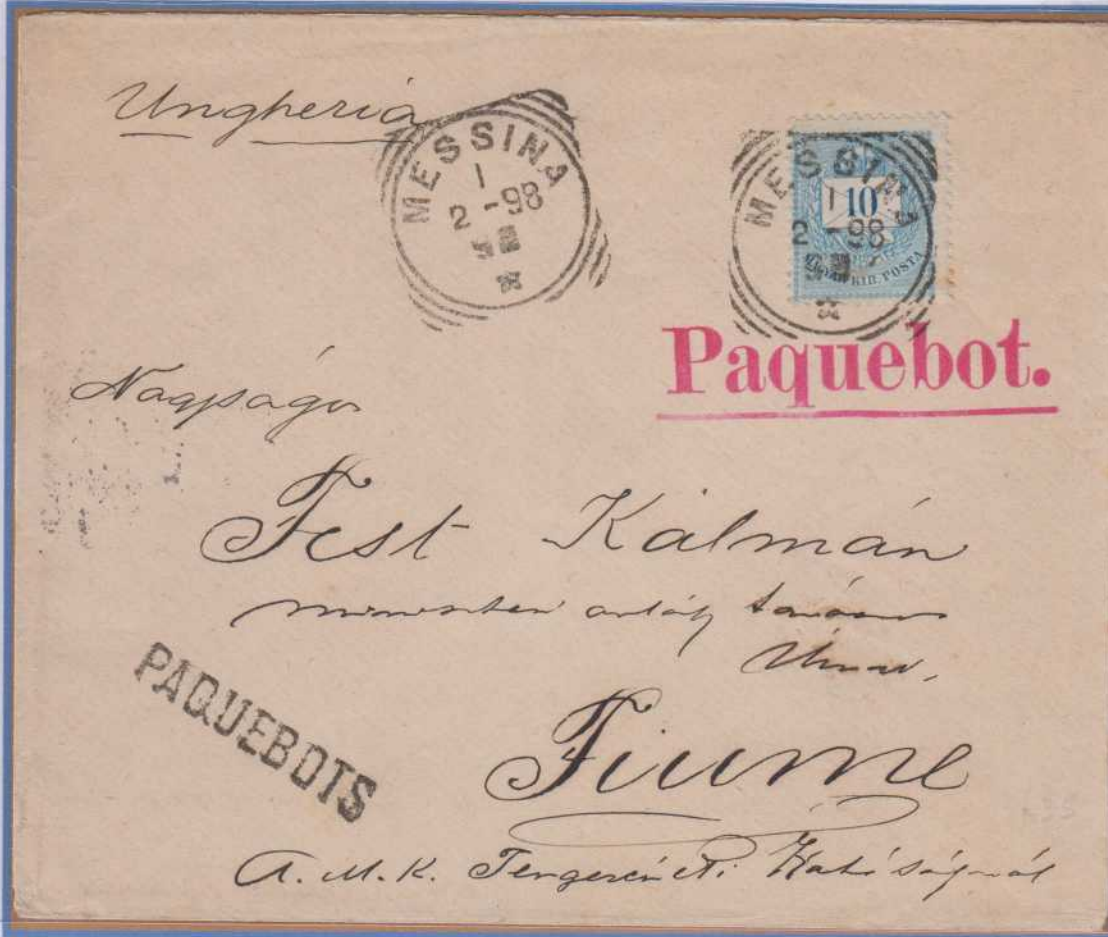 Ungheria
MESSINA
1
2-98
MESSINA
1
2-98
10
MAGYAR KIR. POSTA
Paquebot.
Nagyságos
Fest Kálmán
miniszteri osztály tanácsos
Úrnak,
PAQUEBOTS
Fiume
A. M. K. Tengerészeti Hatóságnál